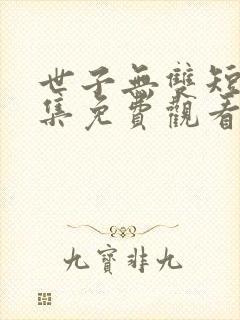 世子無雙短
集免費觀看
九寶非九